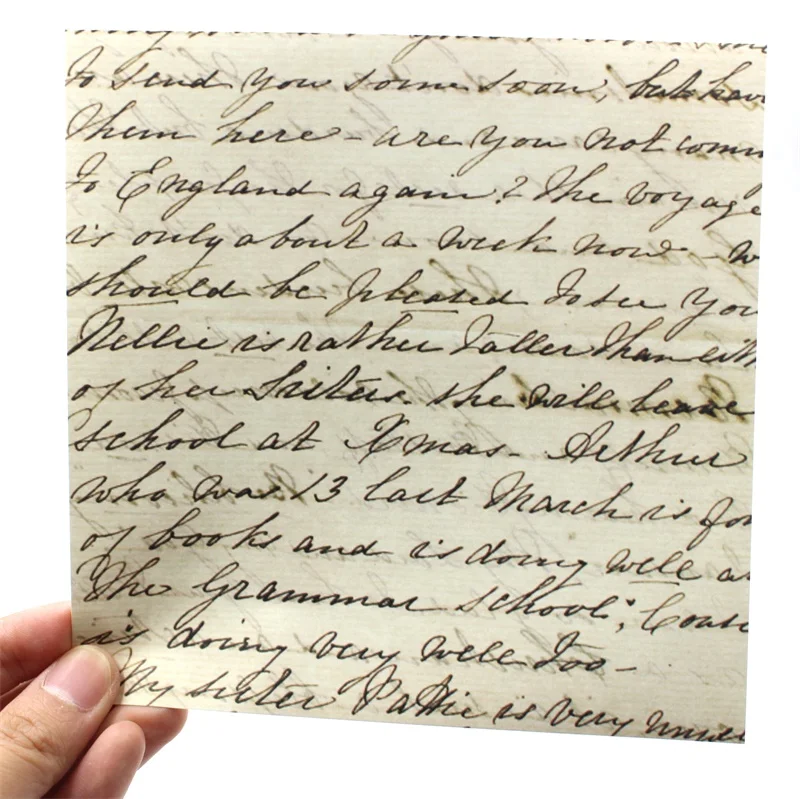 to send you some soon, but hav
them here - are you not comin
to England again? The voyage
is only about a week now - w
should be pleased to see you
Nellie is rather taller than eith
of her sisters. She will leave
school at Xmas. Arthur
who was 13 last March is fon
of books and is doing well a
the Grammar School,
is doing very well too -
My sister Pattie is very